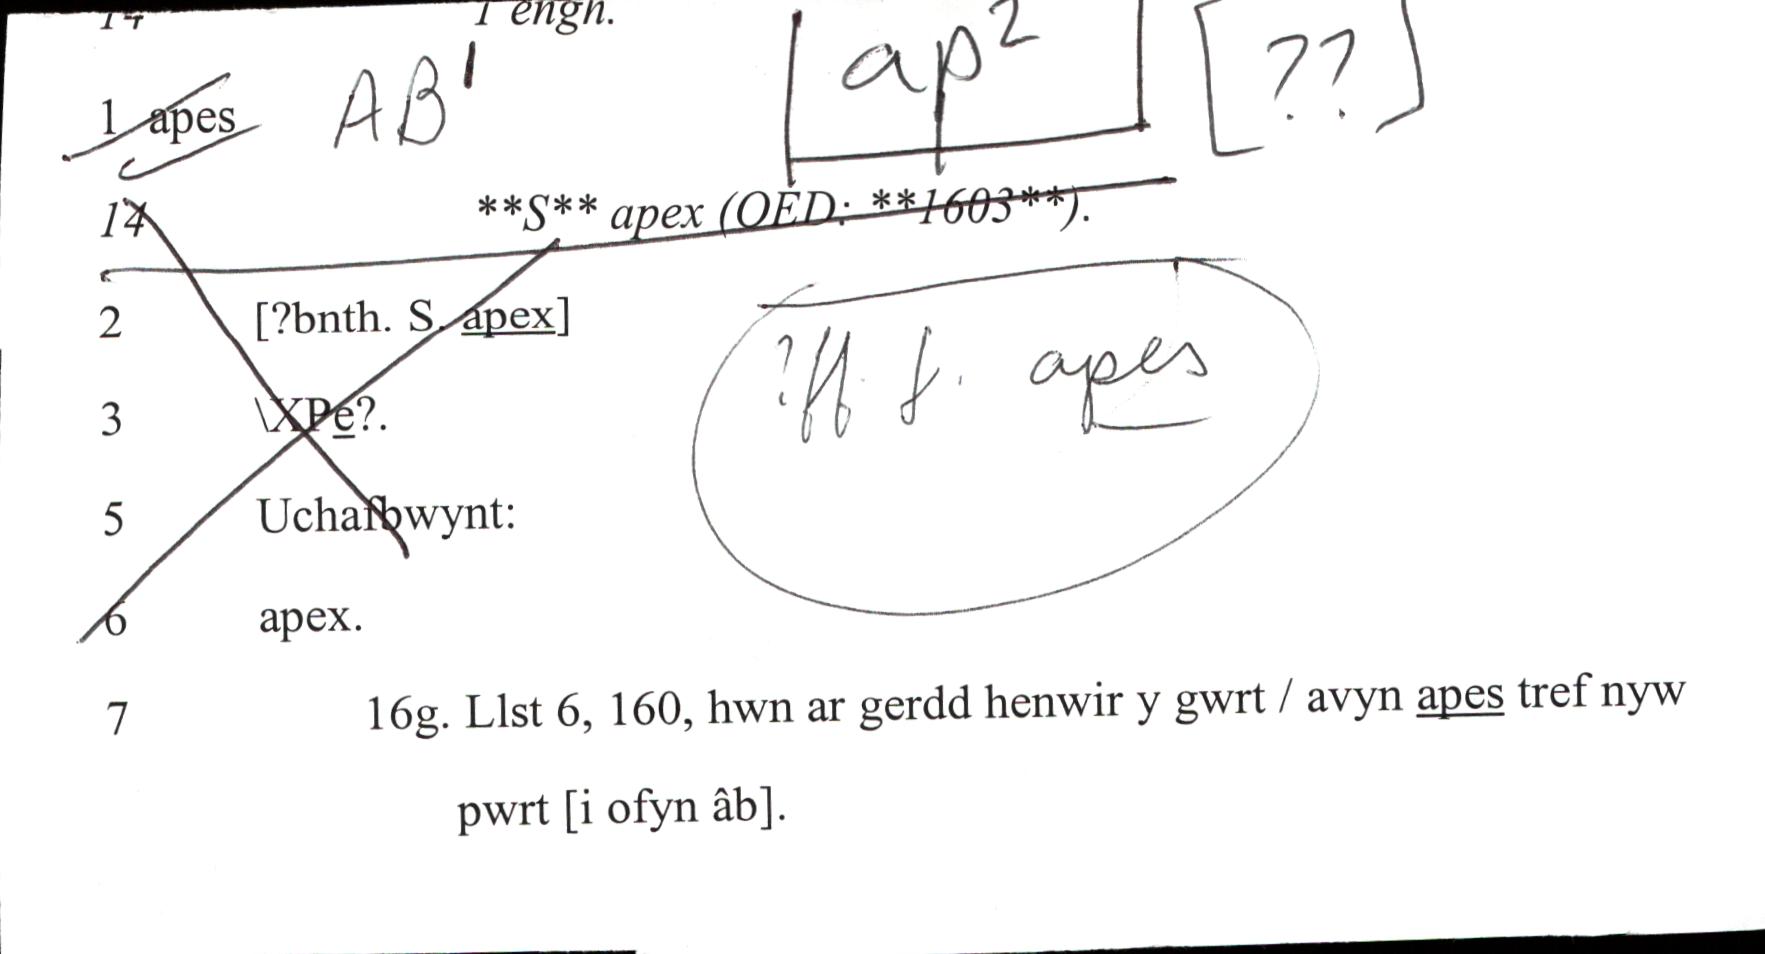 14 1 engh.
1 apes AB¹ ap² [??]
14 **S** apex (OED: **1603**).
2 [?bnth. S. apex]
?ff. f. apes
3 \XPe?.
5 Uchafbwynt:
6 apex.
7 16g. Llst 6, 160, hwn ar gerdd henwir y gwrt / avyn apes tref nyw
pwrt [i ofyn âb].